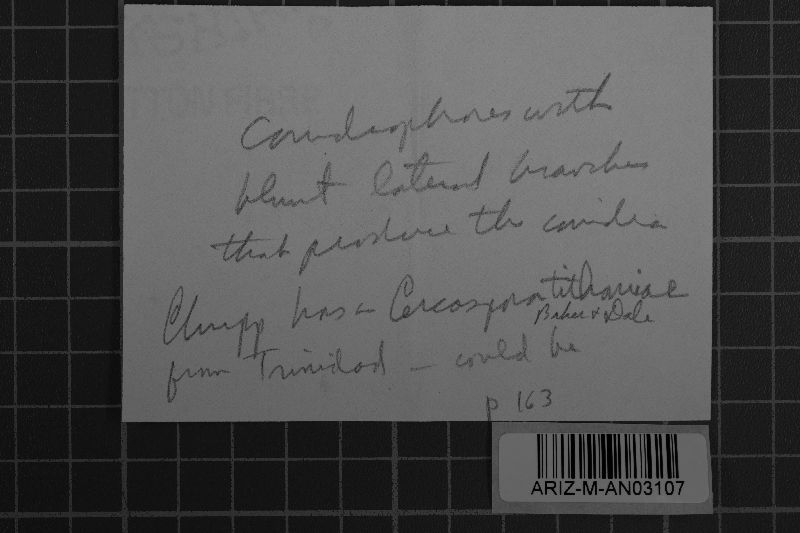 Conidiophores with
blunt lateral branches
that produce the conidia
Chupp has a Cercospora tithoniae
Baker & Dale
from Trinidad — could be
p 163
ARIZ-M-AN03107